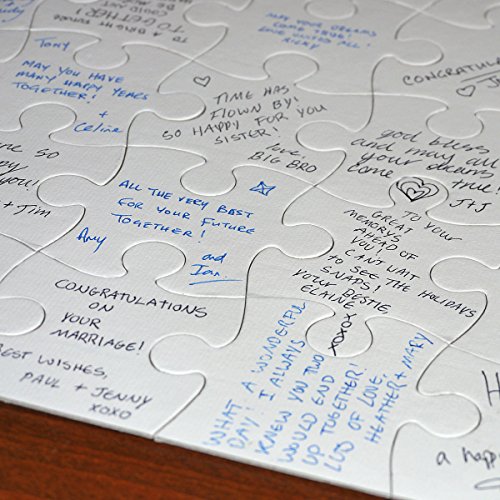 TO A BRIGHT
TOGETHER!
MAY YOUR DREAMS
COME TRUE!
LOVE UNITES ALL!
RICKY
TONY
MAY YOU HAVE
MANY HAPPY YEARS
TOGETHER!
+
Celine
TIME HAS
FLOWN BY!
SO HAPPY FOR YOU
SISTER!
love,
BIG BRO
god bless
and may all
your dreams
come true!
J+J
so
happy
you!
+ Jim
ALL THE VERY BEST
FOR YOUR FUTURE
TOGETHER!
Amy
and
Ian.
TO YOUR
GREAT
MEMORYS
AHEAD OF
YOU! I
CANT WAIT
to SEE THE HOLIDAYS
SNAPS!
YOUR BESTIE
ELAINE
xoxox
CONGRATULATIONS
ON
YOUR
MARRIAGE!
BEST WISHES,
PAUL + JENNY
XOXO
WHAT A WONDERFUL
DAY! I ALWAYS
KNEW YOU TWO
WOULD END
UP TOGETHER!
LUD OF LOVE,
HEATHER + MARY
a happ